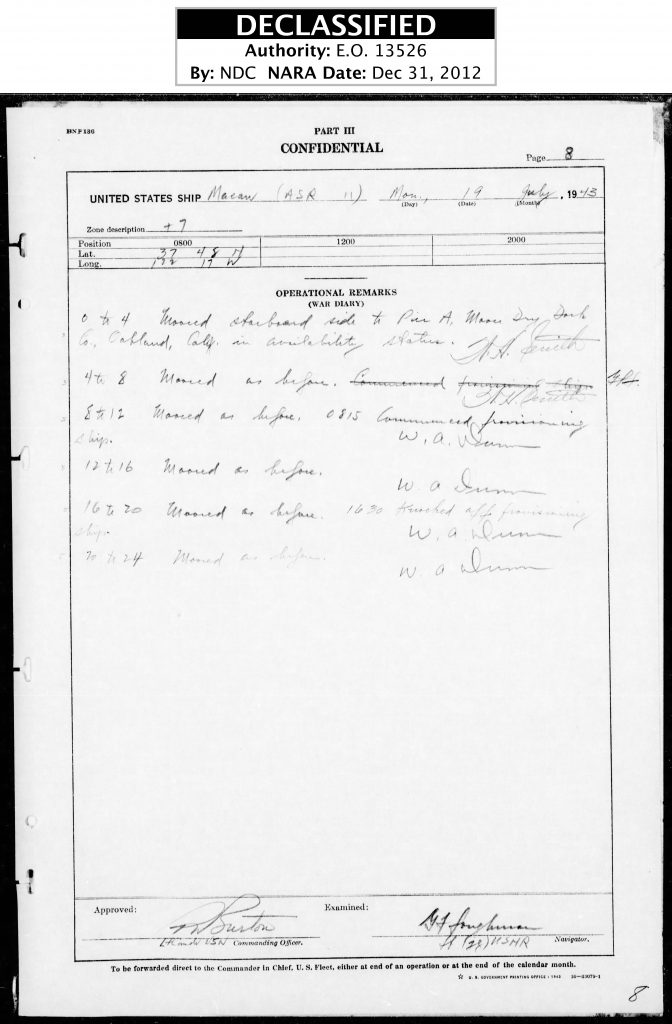 DECLASSIFIED
Authority: E.O. 13526
By: NDC NARA Date: Dec 31, 2012
PART III
CONFIDENTIAL
Page 8
UNITED STATES SHIP Macaw (ASR 11) Mon., 19 July, 1943
(Day) (Date) (Month)
Zone description +7
Position 0800 1200 2000
Lat. 37 48 N
Long. 122 17 W
OPERATIONAL REMARKS
(WAR DIARY)
0 to 4 Moored starboard side to Pier A, Moore Dry Dock
Co., Oakland, Calif. in availability status.
Smith
4 to 8 Moored as before. Commenced provisioning ship.
Smith
8 to 12 Moored as before. 0815 Commenced provisioning
ship.
W. A. Dunn
12 to 16 Moored as before.
W. A. Dunn
16 to 20 Moored as before. 1630 Knocked off provisioning
ship.
W. A. Dunn
20 to 24 Moored as before.
W. A. Dunn
Approved: Examined:
Burton
Lt Comdr USN Commanding Officer. Lt (jg) USNR Navigator.
To be forwarded direct to the Commander in Chief, U. S. Fleet, either at end of an operation or at the end of the calendar month.
☆ U. S. GOVERNMENT PRINTING OFFICE : 1943
8